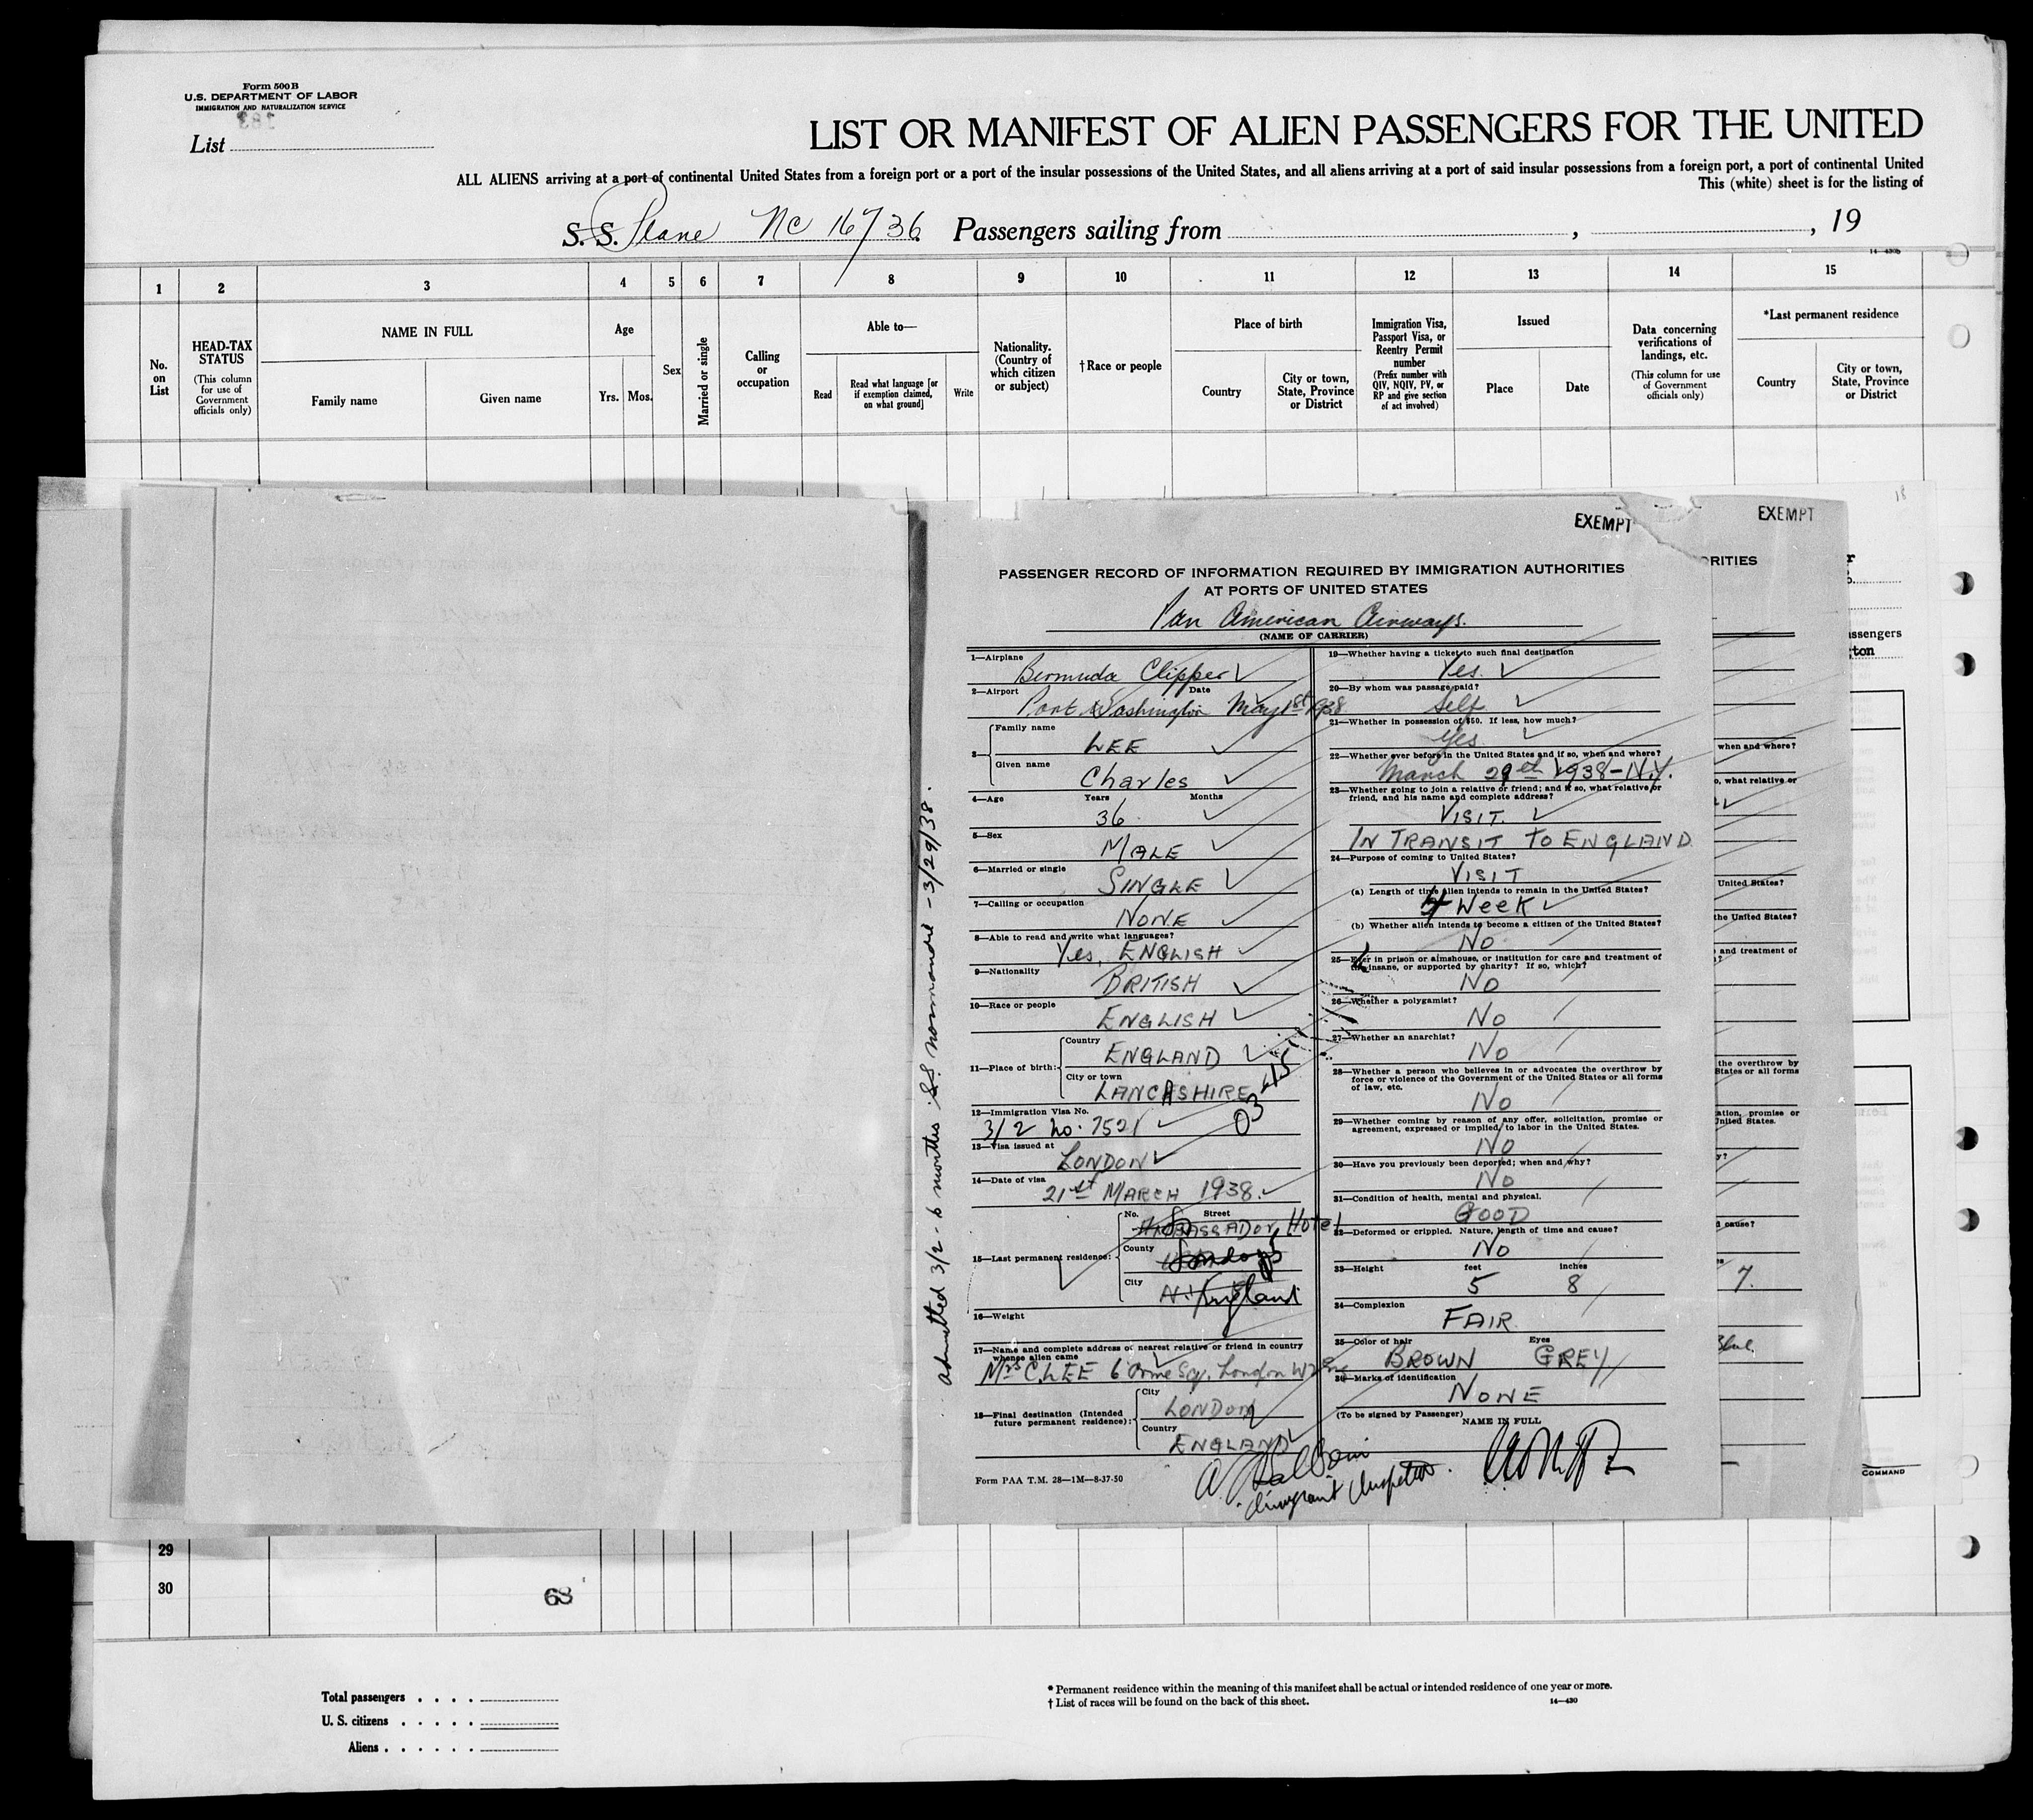 Form 500B
U.S. DEPARTMENT OF LABOR
IMMIGRATION AND NATURALIZATION SERVICE
List
LIST OR MANIFEST OF ALIEN PASSENGERS FOR THE UNITED
ALL ALIENS arriving at a port of continental United States from a foreign port or a port of the insular possessions of the United States, and all aliens arriving at a port of said insular possessions from a foreign port, a port of continental United
This (white) sheet is for the listing of
S. S. Plane NC 16736 Passengers sailing from , , 19
1 2 3 4 5 6 7 8 9 10 11 12 13 14 15
No. on List
HEAD-TAX STATUS
(This column for use of Government officials only)
NAME IN FULL
Family name
Given name
Age
Yrs. Mos.
Sex
Married or single
Calling or occupation
Able to—
Read
Read what language [or if exemption claimed, on what ground]
Write
Nationality. (Country of which citizen or subject)
†Race or people
Place of birth
Country
City or town, State, Province or District
Immigration Visa, Passport Visa, or Reentry Permit number
(Prefix number with QIV, NQIV, PV, or RP and give section of act involved)
Issued
Place
Date
Data concerning verifications of landings, etc.
(This column for use of Government officials only)
*Last permanent residence
Country
City or town, State, Province or District
EXEMPT
EXEMPT
PASSENGER RECORD OF INFORMATION REQUIRED BY IMMIGRATION AUTHORITIES
AT PORTS OF UNITED STATES
Pan American Airways.
(NAME OF CARRIER)
1—Airplane
Bermuda Clipper
2—Airport Date
Port Washington May 1st 1938
3— Family name
LEE
Given name
Charles
4—Age Years Months
36
5—Sex
MALE
6—Married or single
SINGLE
7—Calling or occupation
NONE
8—Able to read and write what languages?
Yes, ENGLISH
9—Nationality
BRITISH
10—Race or people
ENGLISH
11—Place of birth: Country
ENGLAND
City or town
LANCASHIRE
12—Immigration Visa No.
3/2 No. 7521
13—Visa issued at
LONDON
14—Date of visa
21st MARCH 1938.
15—Last permanent residence: No. Street
AMBASSADOR Hotel
County
London
City
England
16—Weight
17—Name and complete address of nearest relative or friend in country whence alien came
Mrs C. LEE 6 Orme Sq. London W2
18—Final destination (Intended future permanent residence): City
LONDON
Country
ENGLAND
Form PAA T.M. 28—1M—8-37-50
Immigrant Inspector.
19—Whether having a ticket to such final destination
Yes.
20—By whom was passage paid?
Self
21—Whether in possession of $50. If less, how much?
Yes
22—Whether ever before in the United States and if so, when and where?
March 29th 1938 – N.Y.
23—Whether going to join a relative or friend; and if so, what relative or friend, and his name and complete address?
VISIT.
IN TRANSIT TO ENGLAND
24—Purpose of coming to United States?
VISIT
(a) Length of time alien intends to remain in the United States?
Week
(b) Whether alien intends to become a citizen of the United States?
No
25—Ever in prison or almshouse, or institution for care and treatment of the insane, or supported by charity? If so, which?
No
26—Whether a polygamist?
No
27—Whether an anarchist?
No
28—Whether a person who believes in or advocates the overthrow by force or violence of the Government of the United States or all forms of law, etc.
No
29—Whether coming by reason of any offer, solicitation, promise or agreement, expressed or implied, to labor in the United States.
No
30—Have you previously been deported; when and why?
No
31—Condition of health, mental and physical.
GOOD
32—Deformed or crippled. Nature, length of time and cause?
No
33—Height feet inches
5 8
34—Complexion
FAIR
35—Color of hair Eyes
BROWN GREY
36—Marks of identification
NONE
(To be signed by Passenger)
NAME IN FULL
admitted 3/2 - 6 months SS Normandie - 3/29/38.
ORITIES
when and where?
United States?
the United States?
and treatment of
the overthrow by
States or all forms
United States.
cause?
7.
Blue
ssengers
COMMAND
29
30
68
Total passengers
U. S. citizens
Aliens
* Permanent residence within the meaning of this manifest shall be actual or intended residence of one year or more.
† List of races will be found on the back of this sheet.
14—430